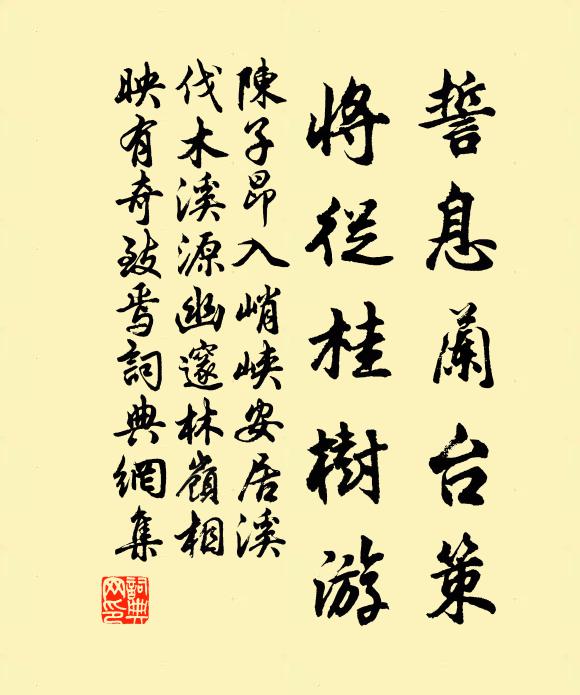 誓息蘭台策
將從桂樹游
陳子昂入峭峽安居溪
伐木溪源幽邃林嶺相
映有奇致焉詞典網集